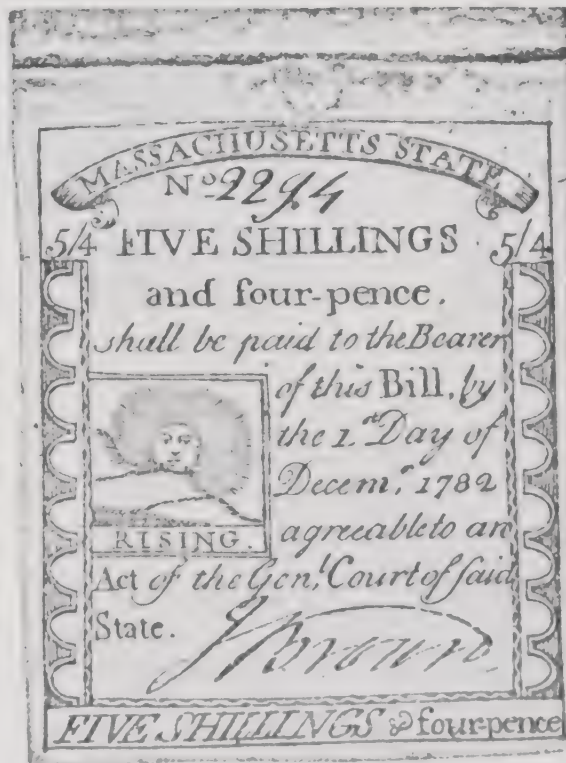 MASSACHUSETTS STATE
No 2294
5/4 FIVE SHILLINGS 5/4
and four-pence.
shall be paid to the Bearer
of this Bill, by
the 1.st Day of
Decem.r 1782
RISING. agreeable to an
Act of the Gen.l Court of said
State. J Brown
FIVE SHILLINGS & four-pence